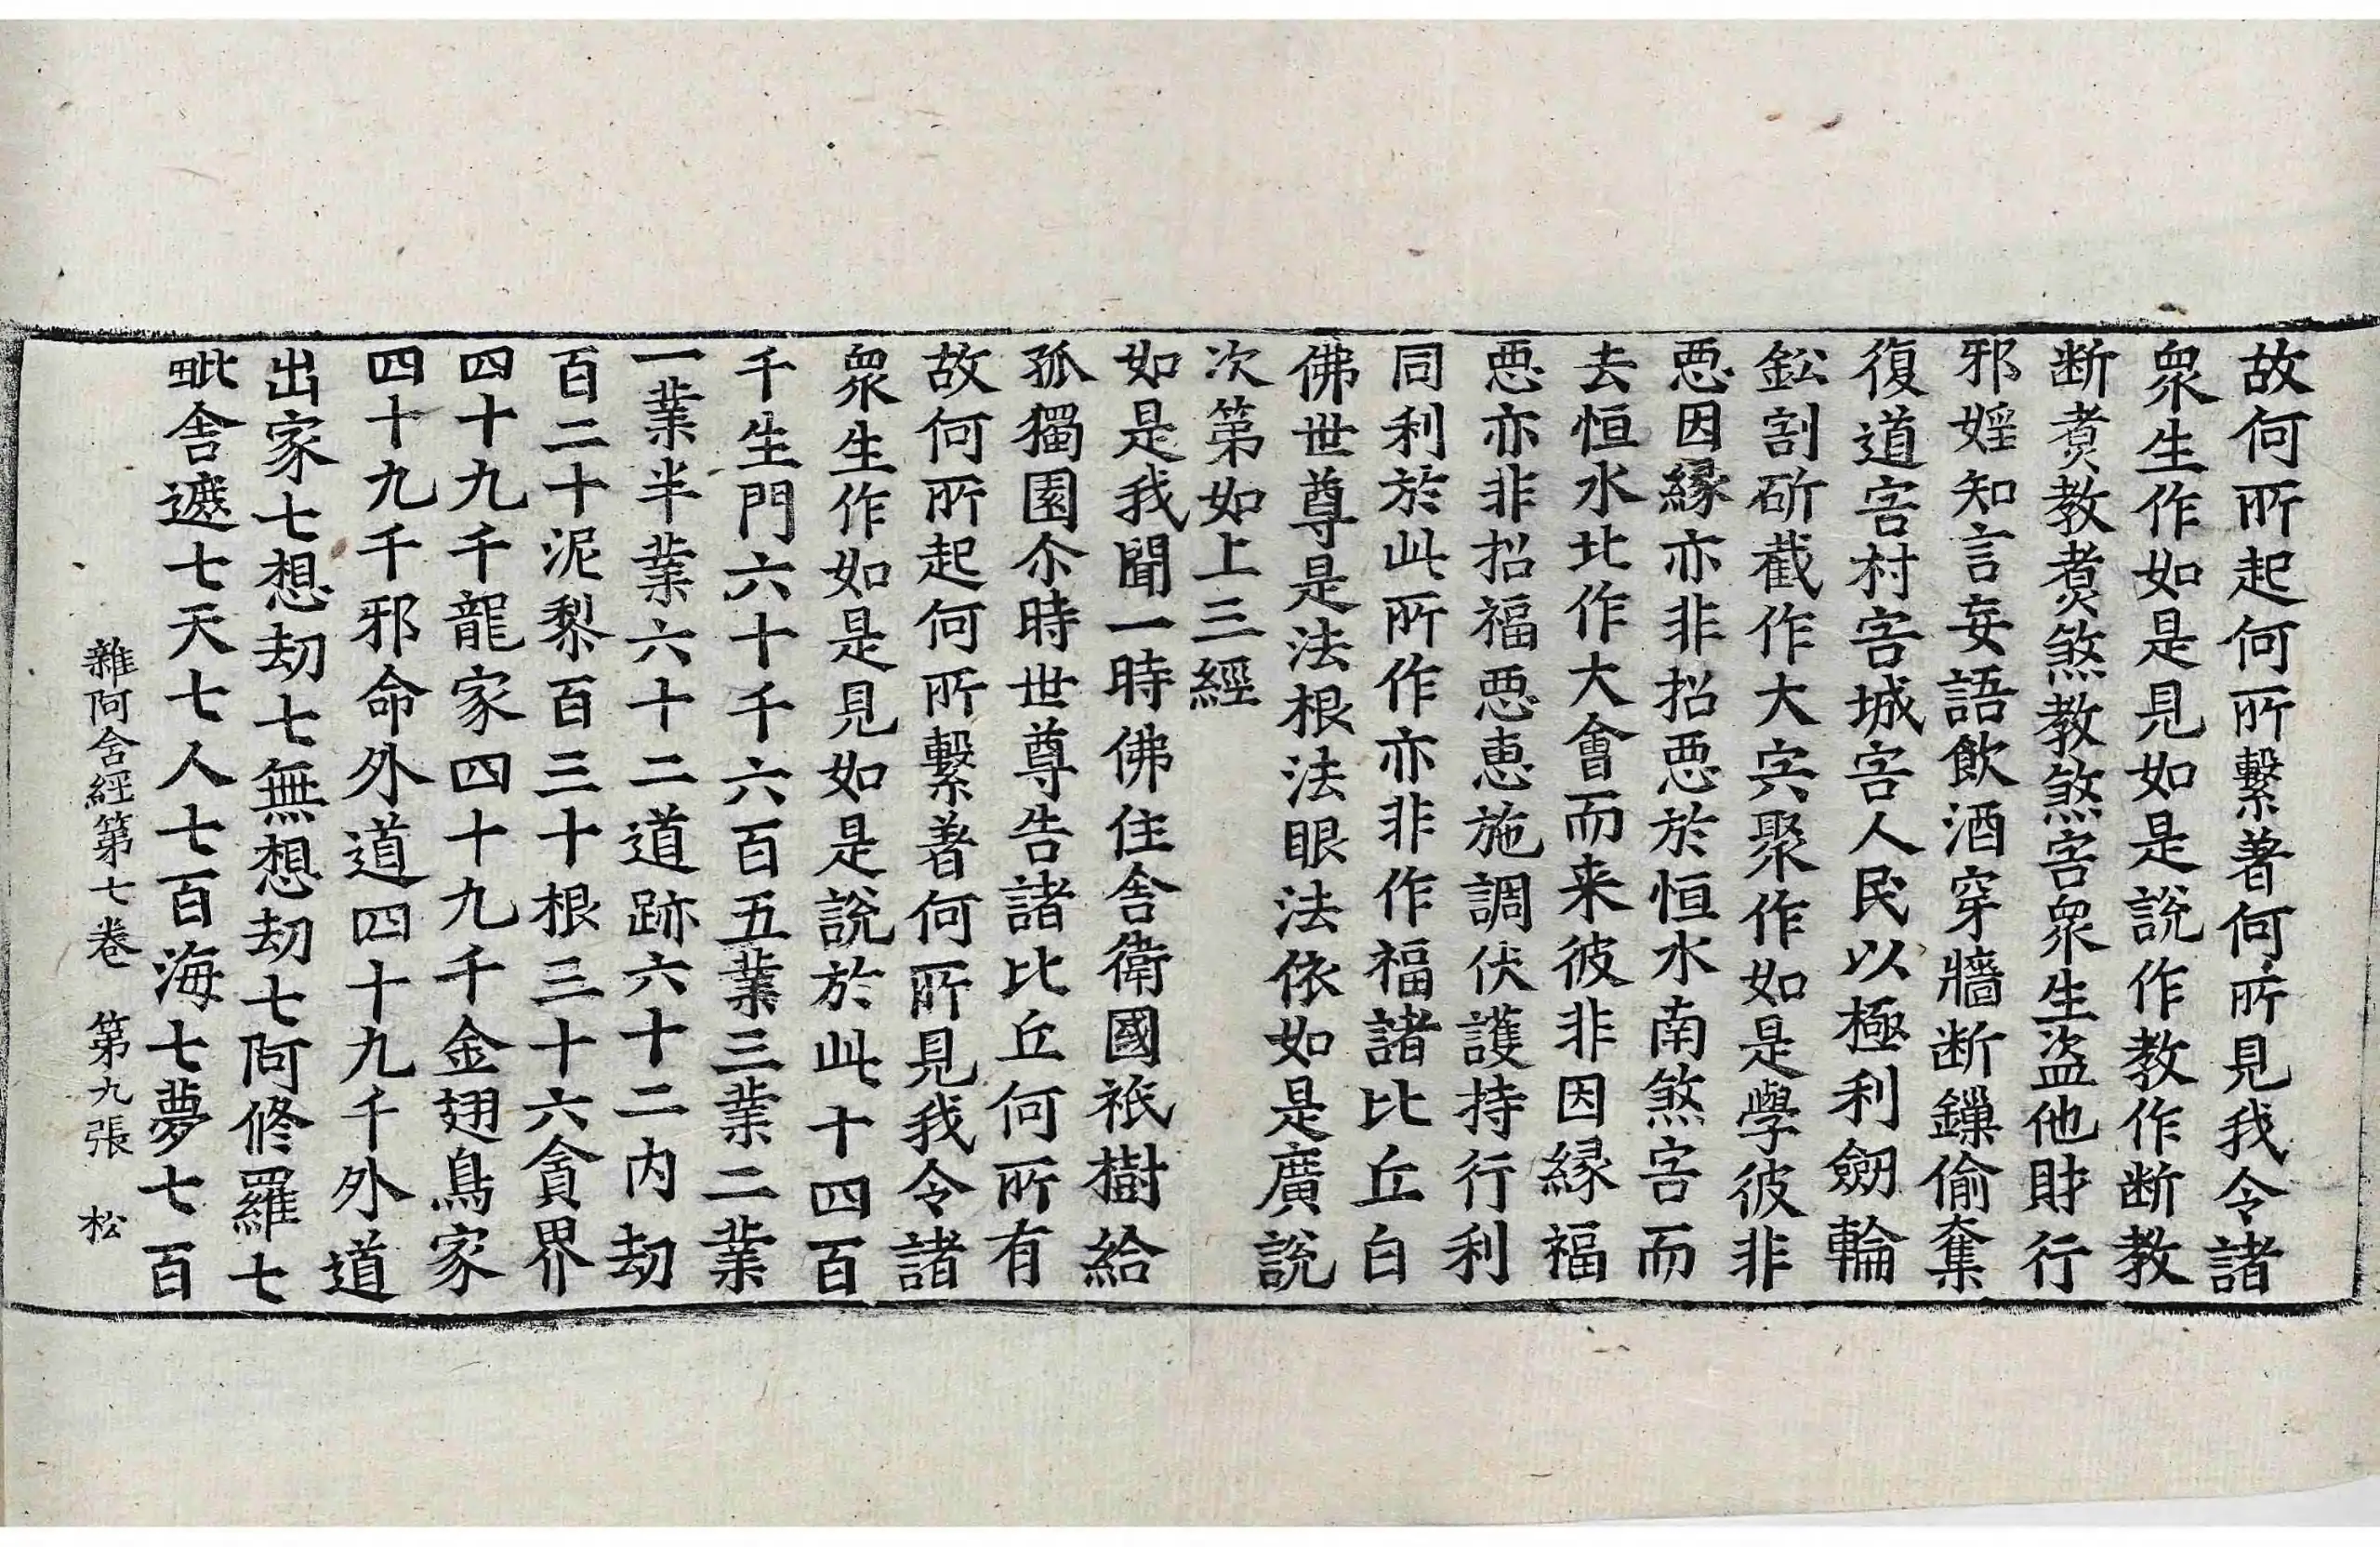 故何所起何所繫著何所見我令諸
衆生作如是見如是說作教作断教
断煑教煑煞教煞害衆生盜他財行
邪婬知言妄語飲酒穿牆断鏁偷奪
復道害村害城害人民以極利劒輪
鈆割斫截作大㝉聚作如是學彼非
惡因緣亦非招惡於恒水南煞害而
去恒水北作大會而来彼非因緣福
惡亦非招福惡恵施調伏護持行利
同利於此所作亦非作福諸比丘白
佛世尊是法根法眼法依如是廣說
次第如上三經
如是我聞一時佛住舍衛國祇樹給
孤獨園尒時世尊告諸比丘何所有
故何所起何所繫著何所見我令諸
衆生作如是見如是說於此十四百
千生門六十千六百五業三業二業
一業半業六十二道跡六十二内劫
百二十泥犁百三十根三十六貪界
四十九千龍家四十九千金翅鳥家
四十九千邪命外道四十九千外道
出家七想劫七無想劫七阿修羅七
毗舍遮七天七人七百海七夢七百
雜阿含經第七卷 第九張 松